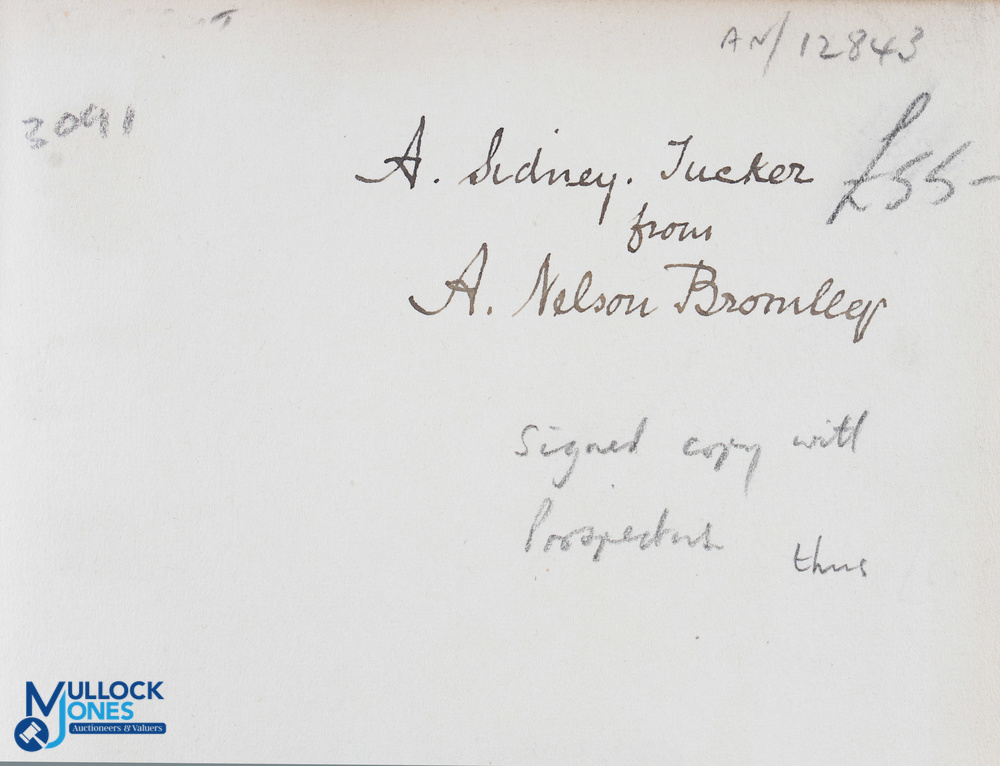 AN/12843
3041
£55-
A. Sidney. Tucker
from
A. Nelson Bromley
Signed copy with
Prospectus thus
MULLOCK
JONES
Auctioneers & Valuers